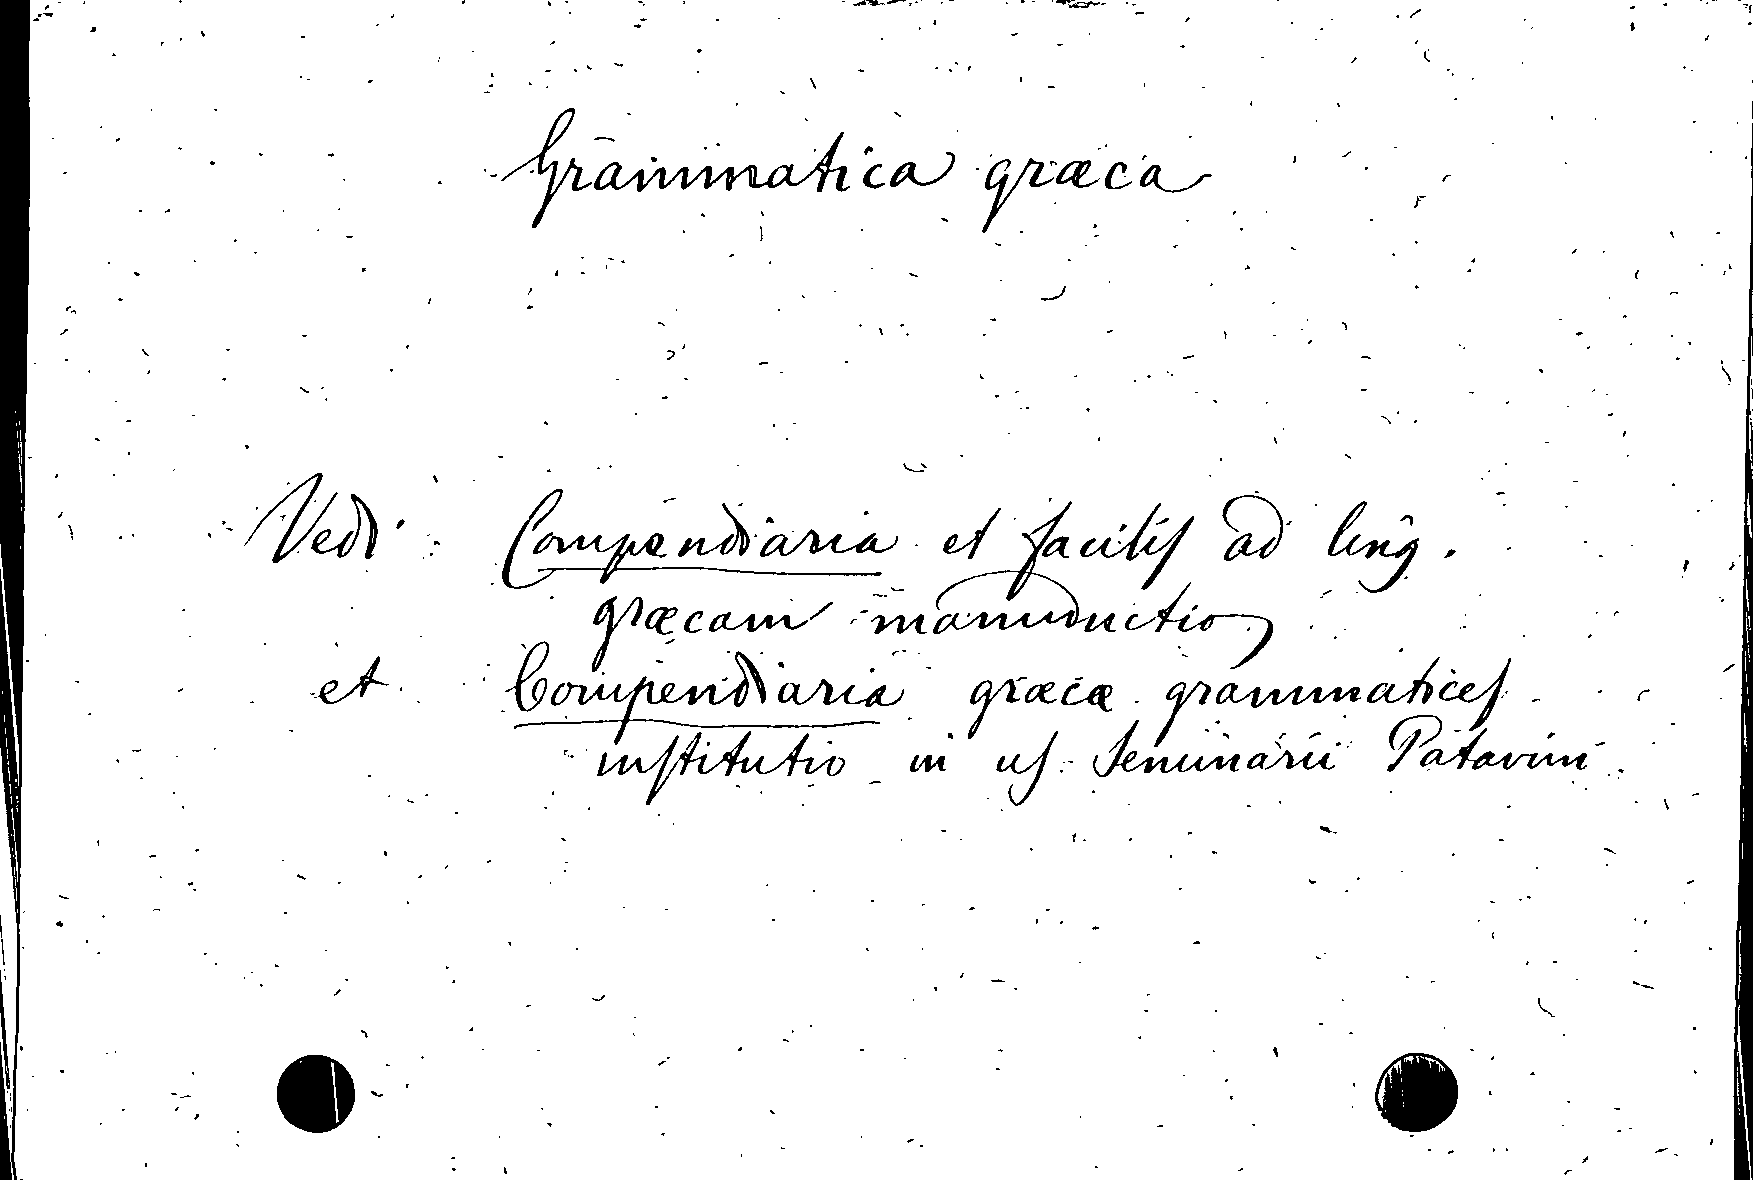 Grammatica græca
Vedi Compendiaria et facilis ad ling.
græcam manuductio
et Compendiaria græcæ grammatices
institutio in us. Seminarii Patavini